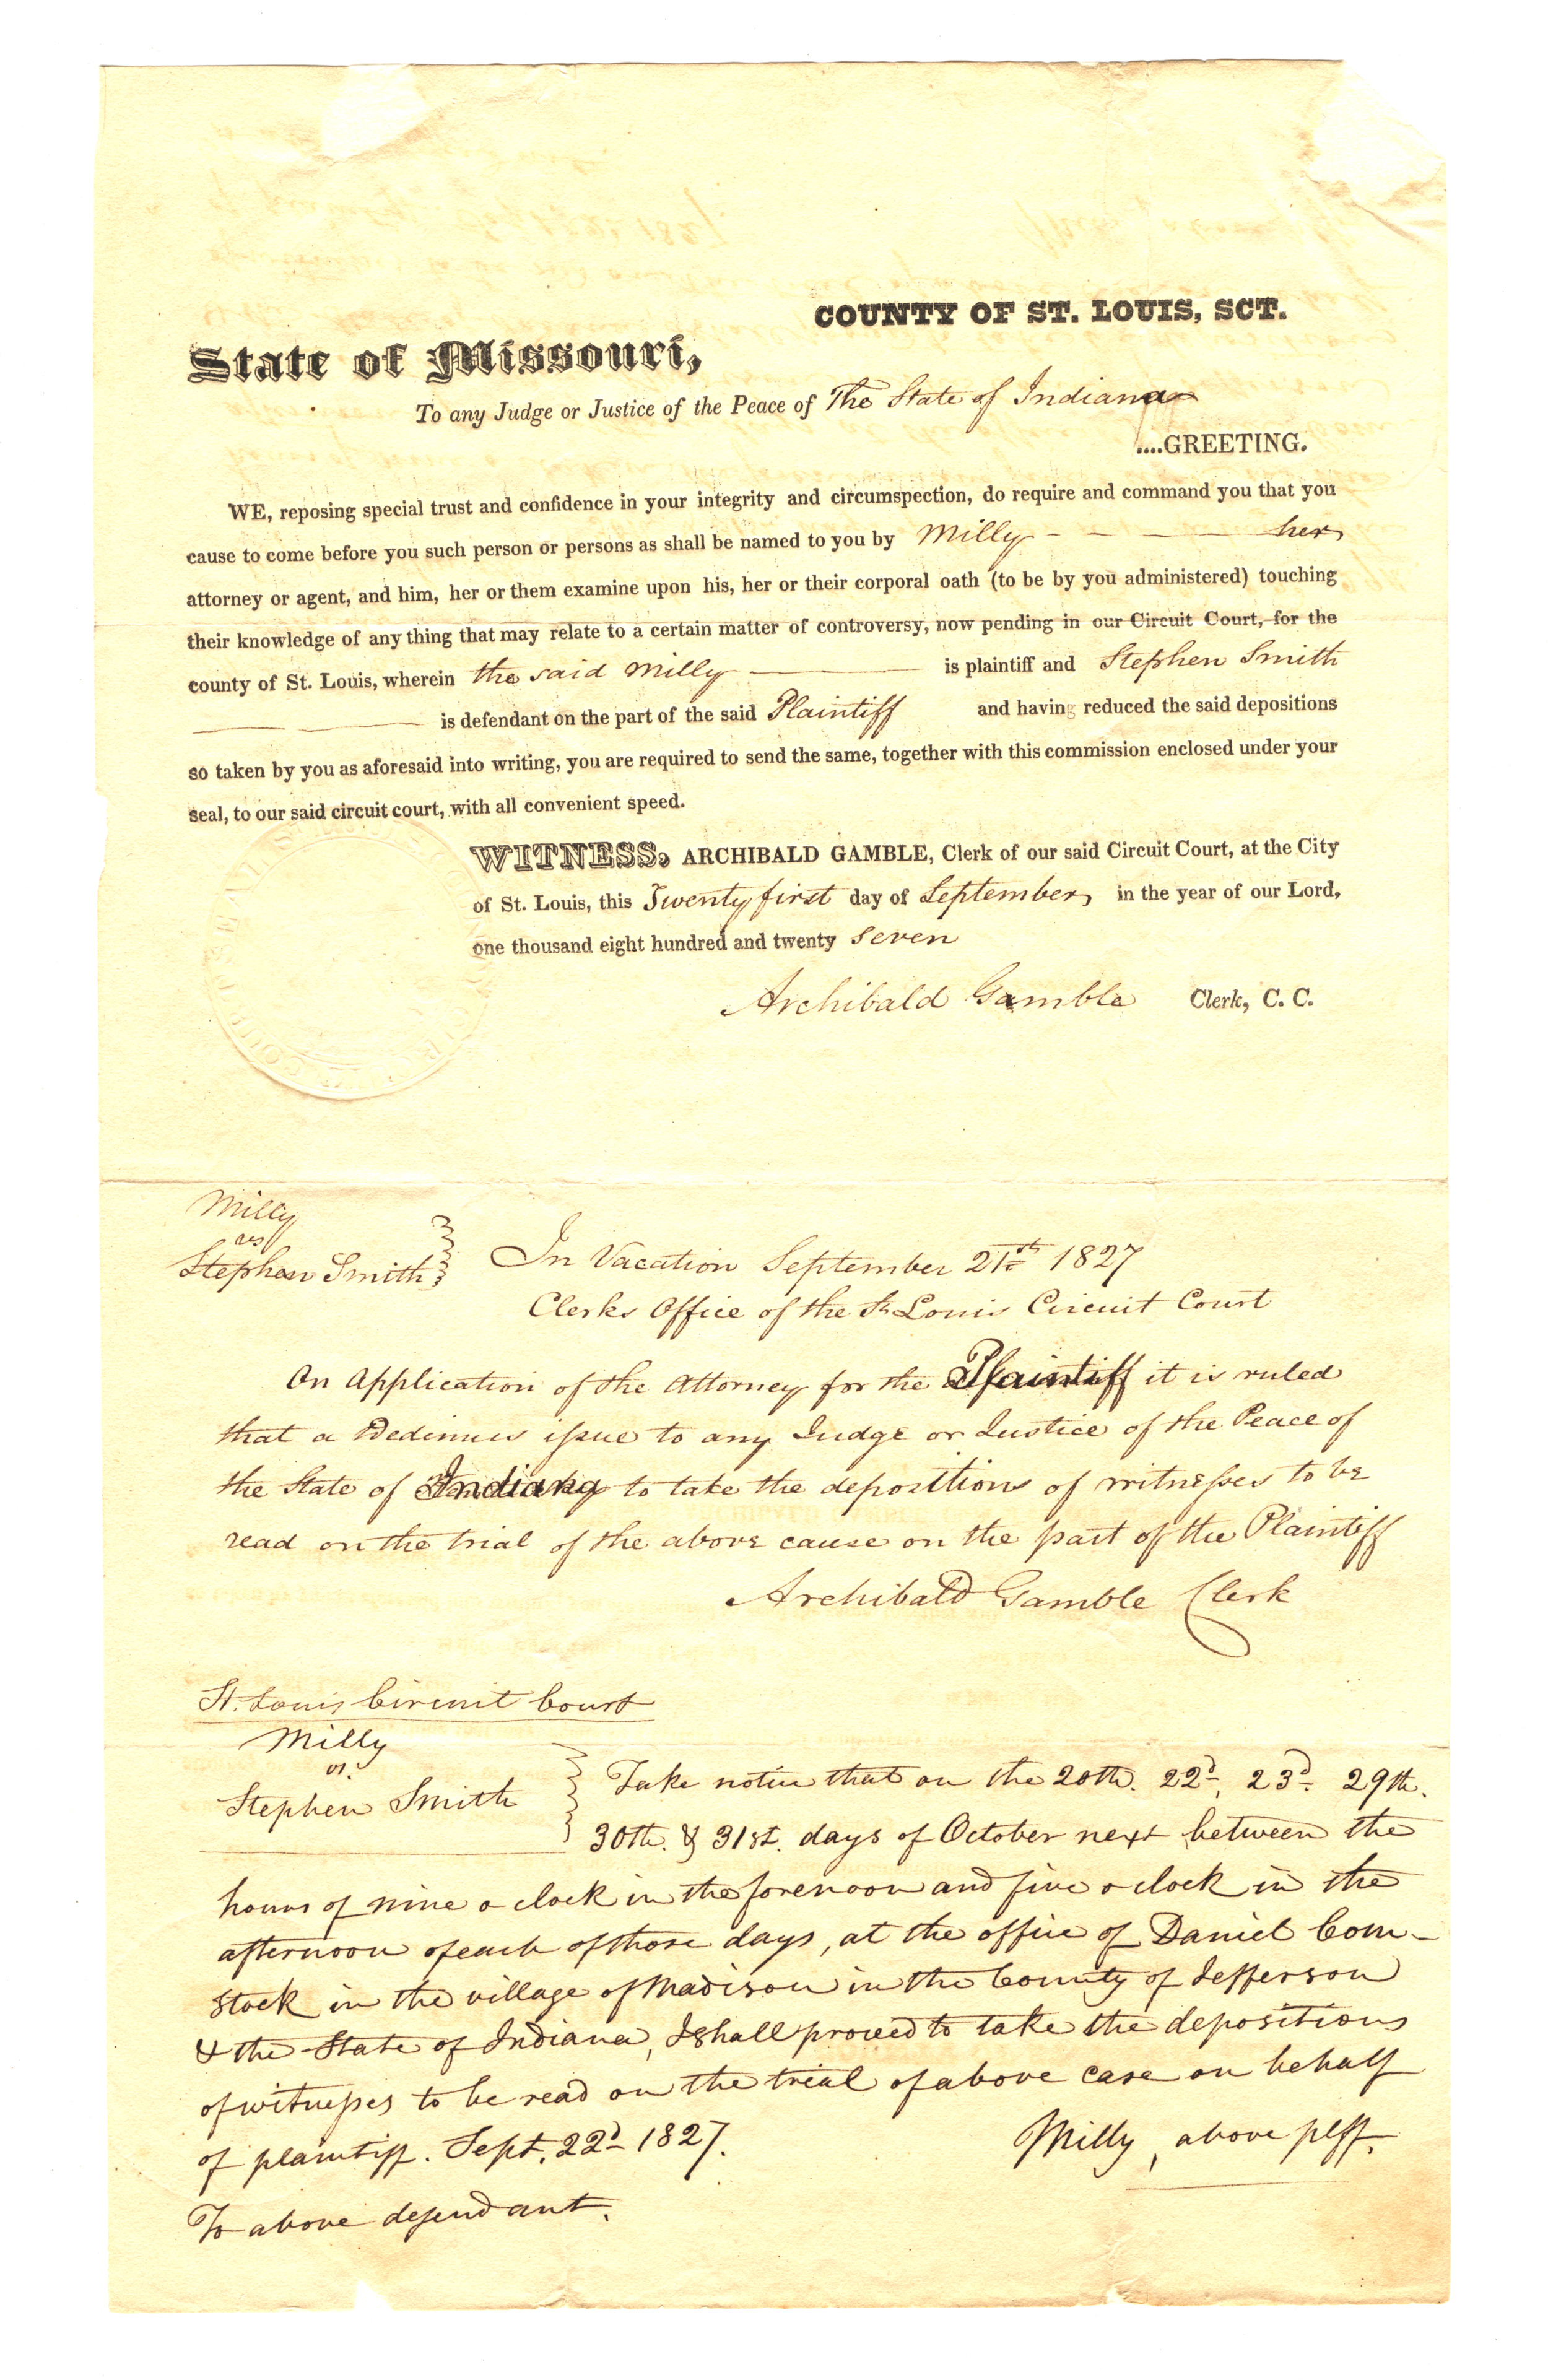 COUNTY OF ST. LOUIS, SCT.
State of Missouri,
To any Judge or Justice of the Peace of The State of Indiana
....GREETING.
WE, reposing special trust and confidence in your integrity and circumspection, do require and command you that you
cause to come before you such person or persons as shall be named to you by Milly - - - - her
attorney or agent, and him, her or them examine upon his, her or their corporal oath (to be by you administered) touching
their knowledge of any thing that may relate to a certain matter of controversy, now pending in our Circuit Court, for the
county of St. Louis, wherein the said Milly is plaintiff and Stephen Smith
is defendant on the part of the said Plaintiff and having reduced the said depositions
so taken by you as aforesaid into writing, you are required to send the same, together with this commission enclosed under your
seal, to our said circuit court, with all convenient speed.
WITNESS, ARCHIBALD GAMBLE, Clerk of our said Circuit Court, at the City
of St. Louis, this Twenty first day of September in the year of our Lord,
one thousand eight hundred and twenty seven
Archibald Gamble Clerk, C. C.
Milly
vs
Stephen Smith
In Vacation September 21st 1827
Clerks Office of the St Louis Circuit Court
On Application of the Attorney for the Plaintiff it is ruled
that a Dedimus issue to any Judge or Justice of the Peace of
the State of Indiana to take the depositions of witnesses to be
read on the trial of the above cause on the part of the Plaintiff
Archibald Gamble Clerk
St. Louis Circuit Court
Milly
vs.
Stephen Smith
Take notice that on the 20th. 22d, 23d. 29th.
30th. & 31st. days of October next between the
hours of nine o clock in the forenoon and five o clock in the
afternoon of each of those days, at the office of Daniel Com-
stock in the village of Madison in the County of Jefferson
& the State of Indiana, I shall proceed to take the depositions
of witnesses to be read on the trial of above case on behalf
of plaintiff. Sept. 22d 1827.
Milly, above plff.
To above defendant.